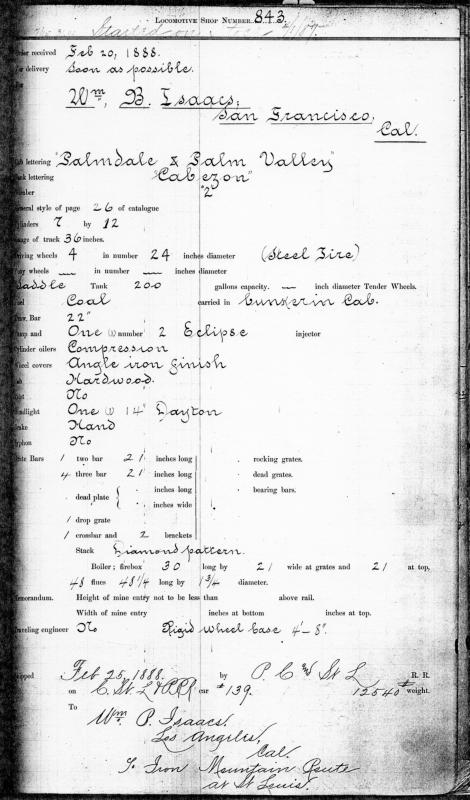 LOCOMOTIVE SHOP NUMBER 843.
Started
received Feb 20, 1888.
delivery Soon as possible.
Wm, B. Isaacs,
San Francisco,
Cal.
lettering "Palmdale & Palm Valley"
lettering "Cabezon"
"2"
style of page 26 of catalogue
7 by 12
of track 36 inches.
wheels 4 in number 24 inches diameter (Steel Tire)
wheels — in number — inches diameter
Saddle Tank 200 gallons capacity. — inch diameter Tender Wheels.
Coal carried in bunker in Cab.
Bar 22"
and One (1) number 2 Eclipse injector
oilers Compression
covers Angle iron finish
Hardwood.
No
One (1) 14" Dayton
Hand
No
Bars 1 two bar 21 inches long rocking grates.
4 three bar 21 inches long dead grates.
dead plate { inches long bearing bars.
inches wide
1 drop grate
1 crossbar and 2 brackets
Stack Diamond pattern.
Boiler; firebox 30 long by 21 wide at grates and 21 at top,
48 flues 48 1/4 long by 1 3/4 diameter.
Height of mine entry not to be less than above rail.
Width of mine entry inches at bottom inches at top.
engineer No Rigid wheel base 4'-8".
Feb 25, 1888. by P. C nd St L R. R.
on C. St. L & P RR car # 139. 12540 # weight.
To
Wm. P. Isaacs,
Los Angeles,
Cal.
Iron Mountain Route
at St Louis.